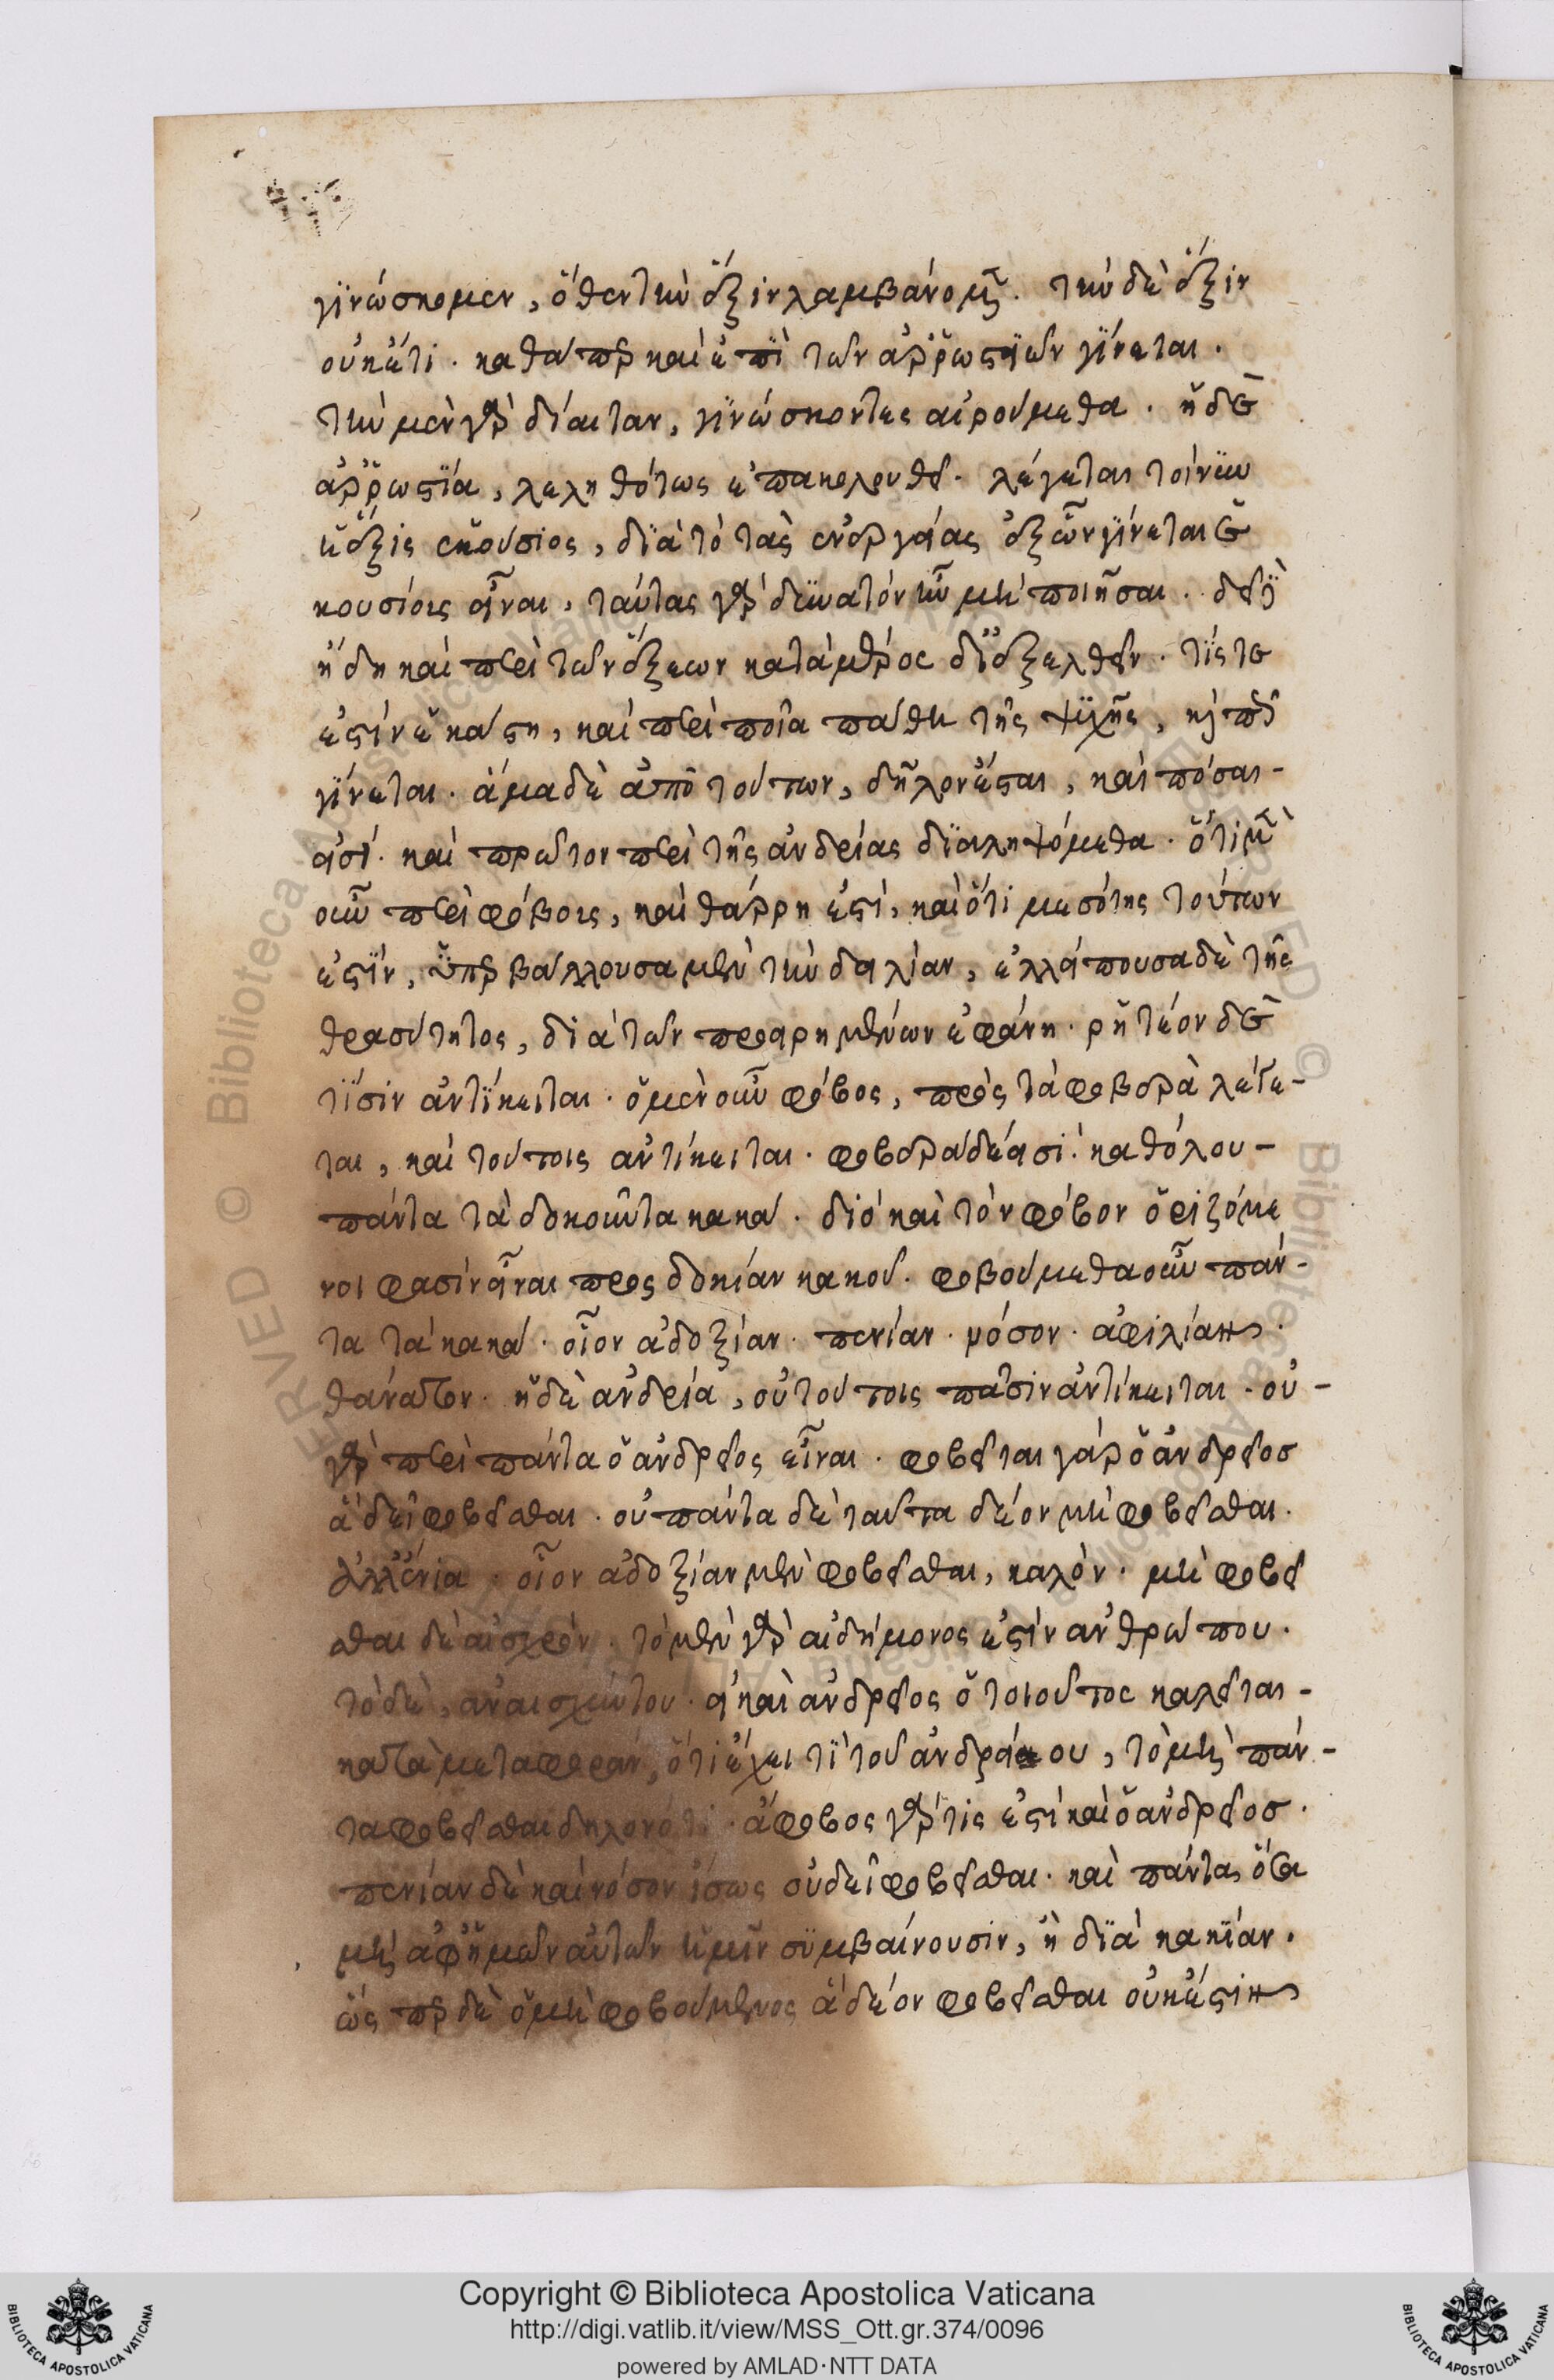 γϊνώσκομεν, ὅθεν τὴν ἕξιν λαμβάνομεν. τὴν δὲ ἕξιν
οὐκέτι. καθάπερ καὶ ἐπὶ τῶν ἀῤῥωστϊῶν γίνεται.
τὴν μὲν γὰρ δίαιταν, γϊνώσκοντες αἱρούμεθα. ἡ δὲ
ἀῤῥωστϊα, λεληθότως ἐπακολουθεῖ. λέγεται τοίνυν
ἡ ἕξις ἑκούσιος, διὰ τὸ τὰς ἐνεργείας ἐξ ὧν γίνεται ἑ
κουσίοις εἶναι, ταύτας γὰρ δυνατὸν ἦν μὴ ποιῆσαι. δεῖ
ἤδη καὶ περὶ τῶν ἕξεων κατὰ μέρος διεξελθεῖν. τίς τε
ἐστὶν ἑκάστη, καὶ περὶ ποῖα πάθη τῆς ψυχῆς, καὶ πῶς
γίνεται. ἅμα δὲ ἀπὸ τούτων, δῆλον ἔσται, καὶ πόσαι-
εἰσί. καὶ πρῶτον περὶ τῆς ἀνδρείας διαληψόμεθα. ὅτι μὲν
οὖν περὶ φόβοις, καὶ θάρρη ἐστὶ, καὶ ὅτι μεσότης τούτων
ἐστὶν, ὑπερβάλλουσα μὲν τὴν δειλίαν, ἐλλείπουσα δὲ τῆς
θρασύτητος, διὰ τῶν προειρημένων ἐφάνη. ῥητέον δὲ
τίσιν ἀντίκειται. ὁ μὲν οὖν φόβος, πρὸς τὰ φοβερὰ λέγε-
ται, καὶ τούτοις ἀντίκειται. φοβερὰ δέ εἰσι. καθόλου-
πάντα τὰ δοκοῦντα κακά. διὸ καὶ τὸν φόβον ὁριζόμε
νοι φασὶν εἶναι προσδοκίαν κακοῦ. φοβούμεθα οὖν πάν-
τα τὰ κακά. οἷον ἀδοξίαν. πενίαν. νόσον. ἀφιλίαν.
θάνατον. ἡ δὲ ἀνδρεία, οὐ τούτοις πᾶσιν ἀντίκειται. οὐ-
γὰρ περὶ πάντα ὁ ἀνδρεῖος εἶναι. φοβεῖται γὰρ ὁ ἀνδρεῖος
ἃ δεῖ φοβεῖσθαι. οὐ πάντα δὲ ταῦτα δέον μὴ φοβεῖσθαι.
ἀλλ' ἔνια. οἷον ἀδοξίαν μὲν φοβεῖσθαι, καλόν. μὴ φοβεῖ
σθαι δὲ αἰσχρόν. τὸ μὲν γὰρ αἰδήμονος ἐστὶν ἀνθρώπου.
τὸ δὲ, ἀναισχύντου. εἰ καὶ ἀνδρεῖος ὁ τοιοῦτος καλεῖται-
κατὰ μεταφορὰν, ὅτι ἔχει τὶ τοῦ ἀνδρείου, τὸ μὴ πάν-
τα φοβεῖσθαι δηλονότι. ἄφοβος γάρ τις ἐστὶ καὶ ὁ ἀνδρεῖος.
πενίαν δὲ καὶ νόσον ἴσως οὐ δεῖ φοβεῖσθαι. καὶ πάντα, ὅσα
μὴ ἀφ' ἡμῶν αὐτῶν ἡμῖν συμβαίνουσιν, ἢ διὰ κακίαν.
ὥσπερ δὲ ὁ μὴ φοβούμενος ἃ δέον φοβεῖσθαι οὐκ ἔστιν
Copyright © Biblioteca Apostolica Vaticana
http://digi.vatlib.it/view/MSS_Ott.gr.374/0096
powered by AMLAD·NTT DATA